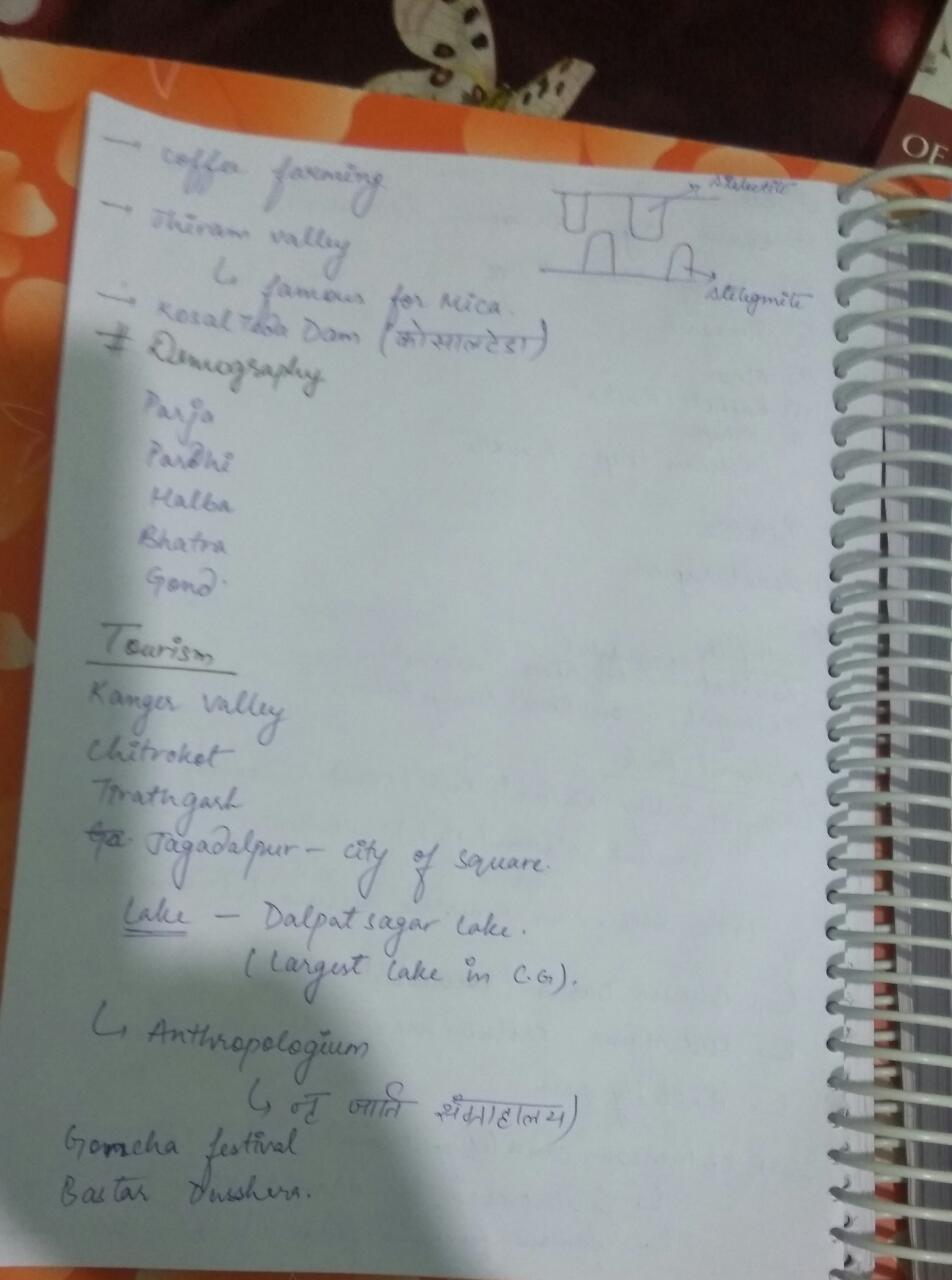 → Coffee farming
→ Jhiram valley
↳ famous for Mica.
→ Kosal Teda Dam (कोसालटेडा)
# Demography
Parja
Pardhi
Halba
Bhatra
Gond.
Stelectite
Stelegmite
Tourism
Kanger Valley
Chitrokot
Tirathgarh
Jagadalpur - city of square.
Lake - Dalpat sagar lake.
(Largest lake in C.G).
↳ Anthropologium
↳ नृ जाति संग्राहालय)
Goncha festival
Bastar Dusshera.
OF